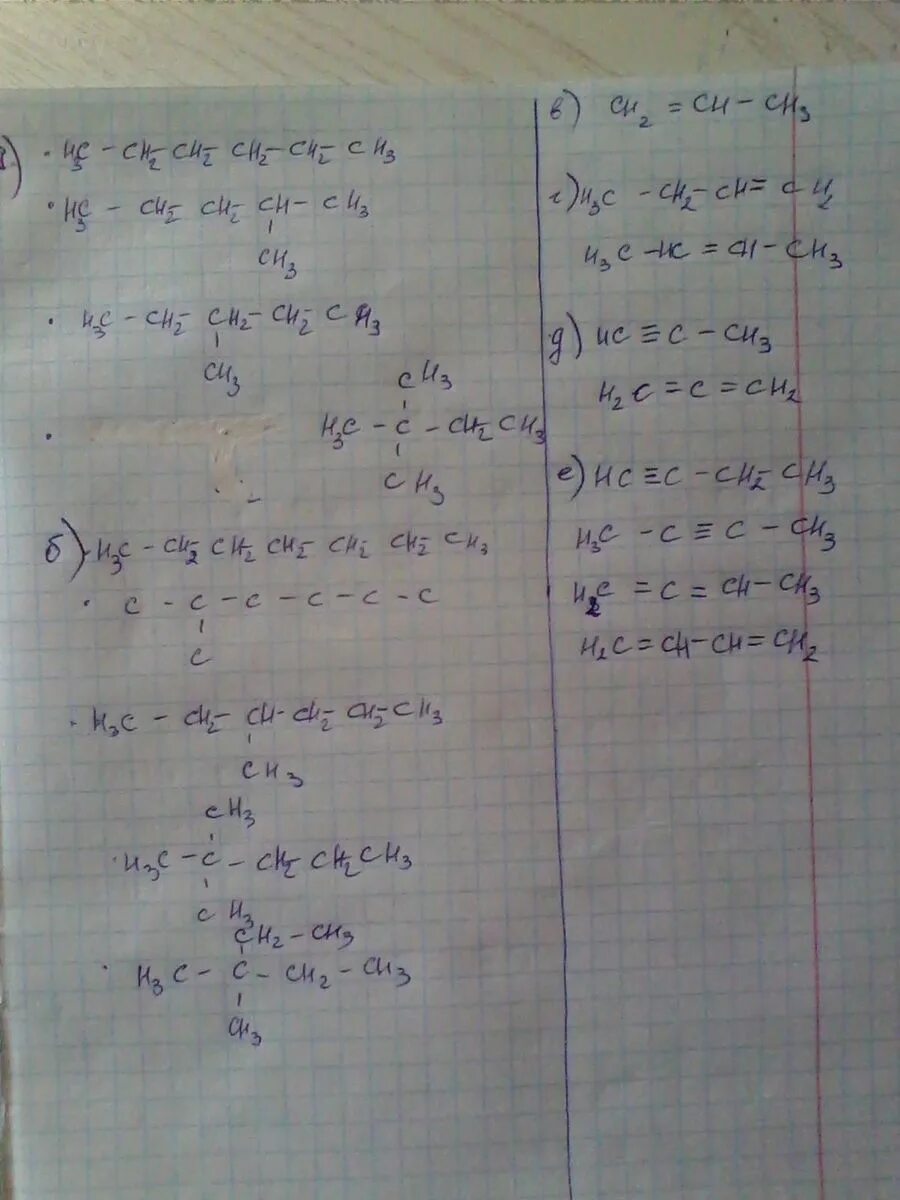 а)
· H₃C – CH₂– CH₂– CH₂– CH₂– CH₃
· H₃C – CH₂– CH₂– CH – CH₃
CH₃
· H₃C – CH₂– CH₂– CH₂– CH₃
CH₃
CH₃
· H₃C – C – CH₂– CH₃
CH₃
б) · H₃C – CH₂– CH₂– CH₂– CH₂– CH₂– CH₃
· C – C – C – C – C – C
C
· H₃C – CH₂– CH – CH₂– CH₂– CH₃
CH₃
CH₃
· H₃C – C – CH₂– CH₂– CH₃
CH₃
CH₂ – CH₃
· H₃C – C – CH₂ – CH₃
CH₃
в) CH₂ = CH – CH₃
г) H₃C – CH₂– CH = CH₂
H₃C – HC = CH – CH₃
д) HC ≡ C – CH₃
H₂C = C = CH₂
е) HC ≡ C – CH₂– CH₃
H₃C – C ≡ C – CH₃
H₂C = C = CH – CH₃
H₂C = CH – CH = CH₂